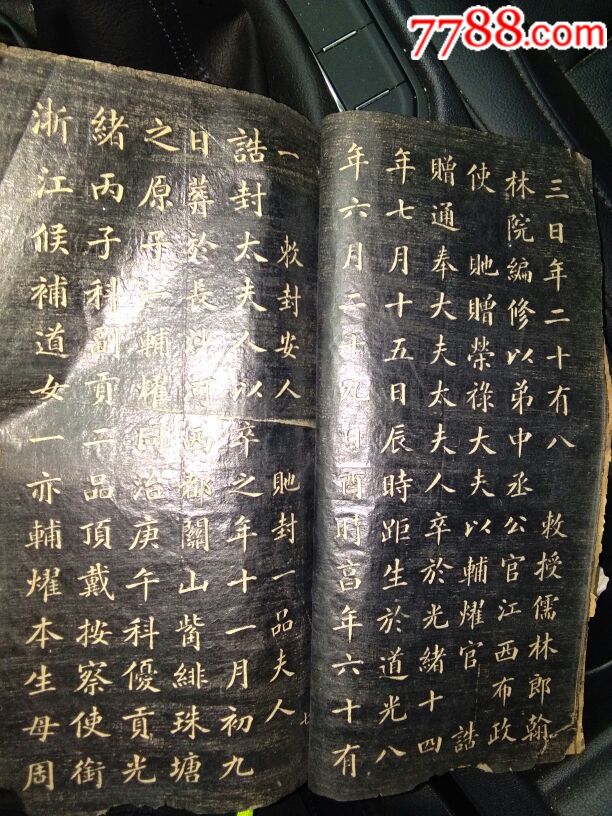 7788.com
三日年二十有八 敕授儒林郎翰
林院編修以弟中丞公官江西布政
使 貤贈榮祿大夫以輔燿官 誥
贈通奉大夫太夫人卒於光緒十四
年七月十五日辰時距生於道光八
年六月二十九日酉時言年六十有
一 敕封安人 貤封一品夫人 七
誥封太夫人以卒之年十一月初九
日葬於長沙河西都關山觜緋珠塘
之原子一輔燿同治庚午科優貢光
緒丙子科副貢二品頂戴按察使銜
浙江候補道女一亦輔燿本生母周